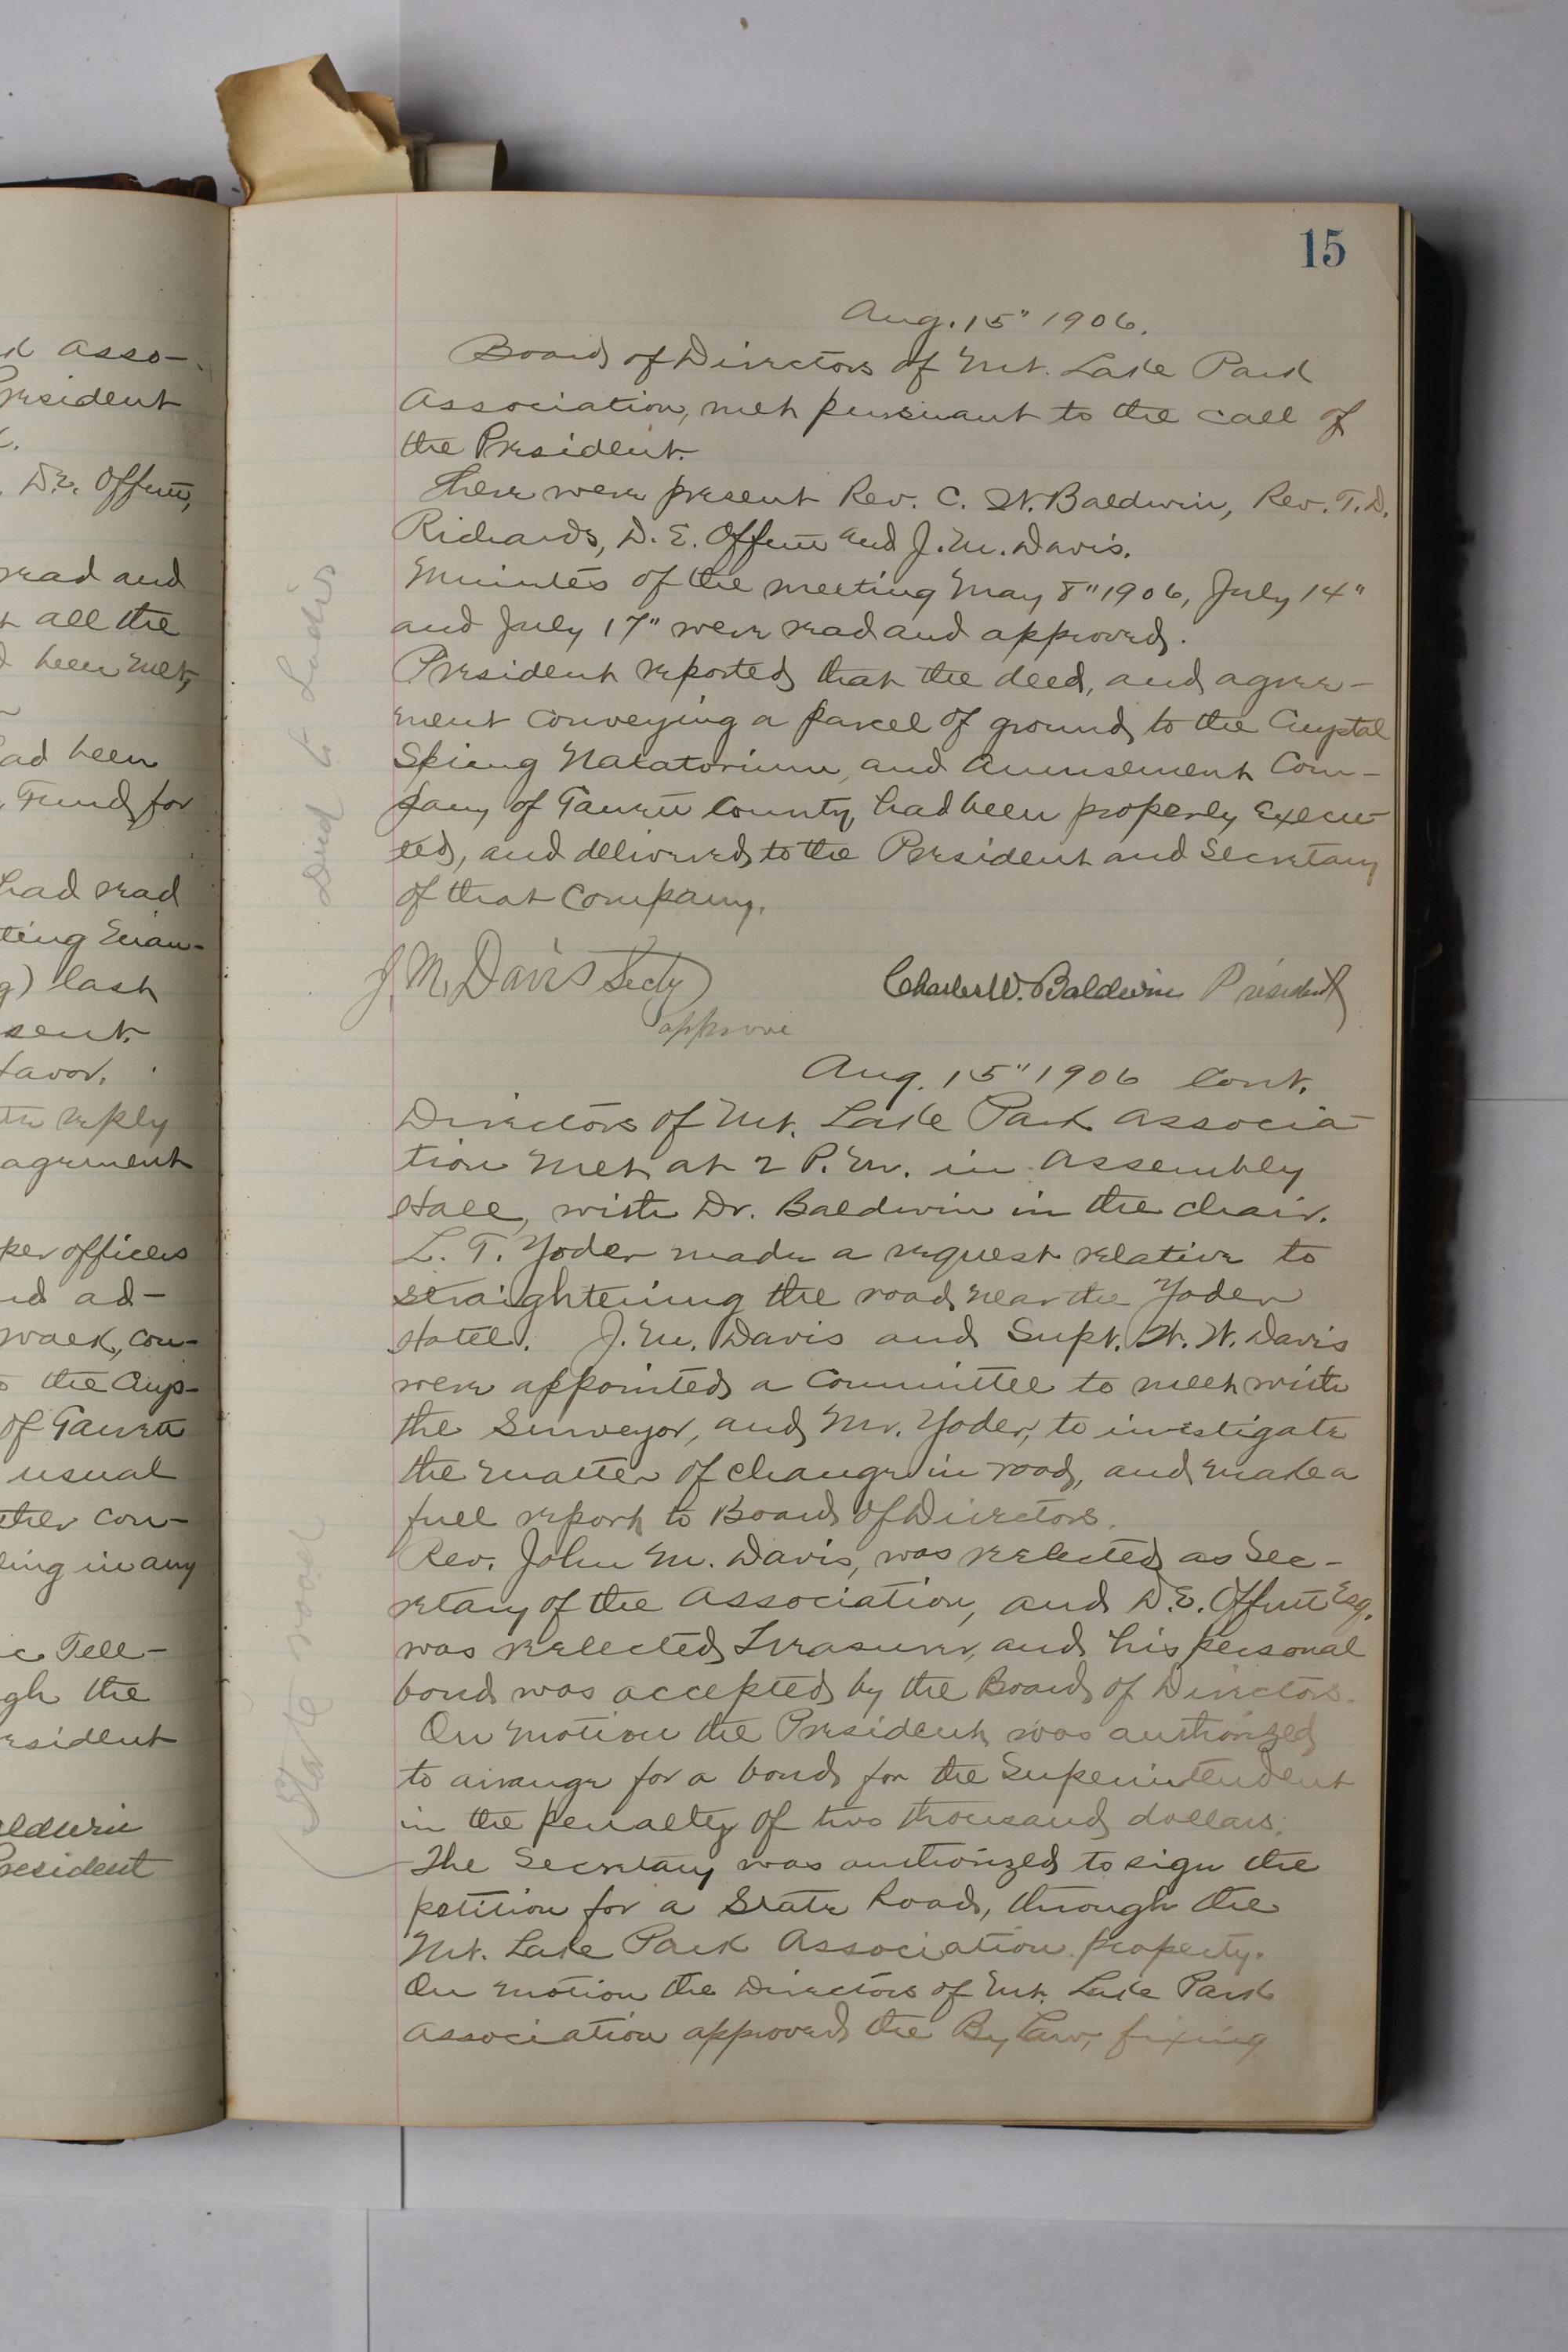 d Asso-
President
D.E. Offutt,
read and
t all the
d been met,
had been
Fund, for
had read
ting Evan-
g) last
sent.
favor.
to reply
agreement
per officers
nd ad-
walk, con-
s the Crys-
of Garrett
usual
ther con-
ling in any
ic Tell-
gh the
resident
aldwin
President
15
Aug. 15" 1906.
Board of Directors of Mt. Lake Park
Association, met pursuant to the call of
the President.
There were present Rev. C. W. Baldwin, Rev. T. D.
Richards, D. E. Offutt and J. M. Davis.
Minutes of the meeting May 8" 1906, July 14"
and July 17" were read and approved.
President reported that the deed, and agree-
ment conveying a parcel of ground to the Crystal
Spring Natatorium and Amusement Com-
pany of Garrett County, had been properly execu-
ted, and delivered to the President and Secretary
of that Company.
Deed to
J. M. Davis Secty
Charles W. Baldwin President
approve
Aug. 15" 1906 Cont.
Directors of Mt. Lake Park Associa-
tion met at 2 P.M. in Assembly
Hall, with Dr. Baldwin in the chair.
L. T. Yoder made a request relative to
straightening the road near the Yoder
Hotel. J. M. Davis and Supt. W. W. Davis
were appointed a Committee to meet with
the Surveyor, and Mr. Yoder, to investigate
the matter of change in road, and make a
full report to Board of Directors.
Rev. John M. Davis, was relected as Sec-
retary of the Association, and D. E. Offutt Esq.
was relected Treasurer, and his personal
bond was accepted by the Board of Directors.
On motion the President was authorized
to arrange for a bond for the Superintendent
in the penalty of two thousand dollars.
State road
The Secretary was authorized to sign the
petition for a State Road, through the
Mt. Lake Park Association property.
On motion the Directors of Mt. Lake Park
Association approved the By Law, fixing